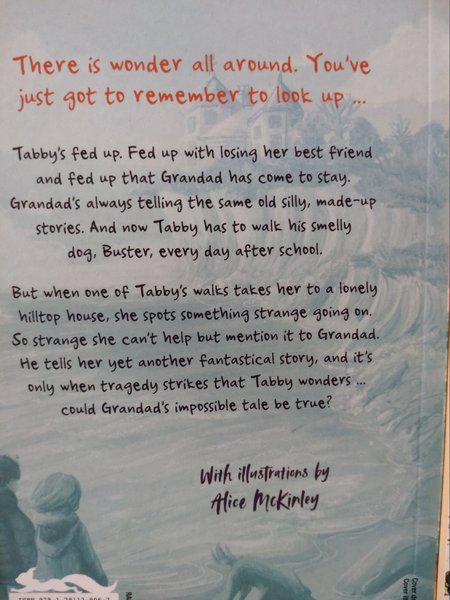 There is wonder all around. You've
just got to remember to look up ...
Tabby's fed up. Fed up with losing her best friend
and fed up that Grandad has come to stay.
Grandad's always telling the same old silly, made-up
stories. And now Tabby has to walk his smelly
dog, Buster, every day after school.
But when one of Tabby's walks takes her to a lonely
hilltop house, she spots something strange going on.
So strange she can't help but mention it to Grandad.
He tells her yet another fantastical story, and it's
only when tragedy strikes that Tabby wonders ...
could Grandad's impossible tale be true?
With illustrations by
Alice McKinley
Cover
Cover